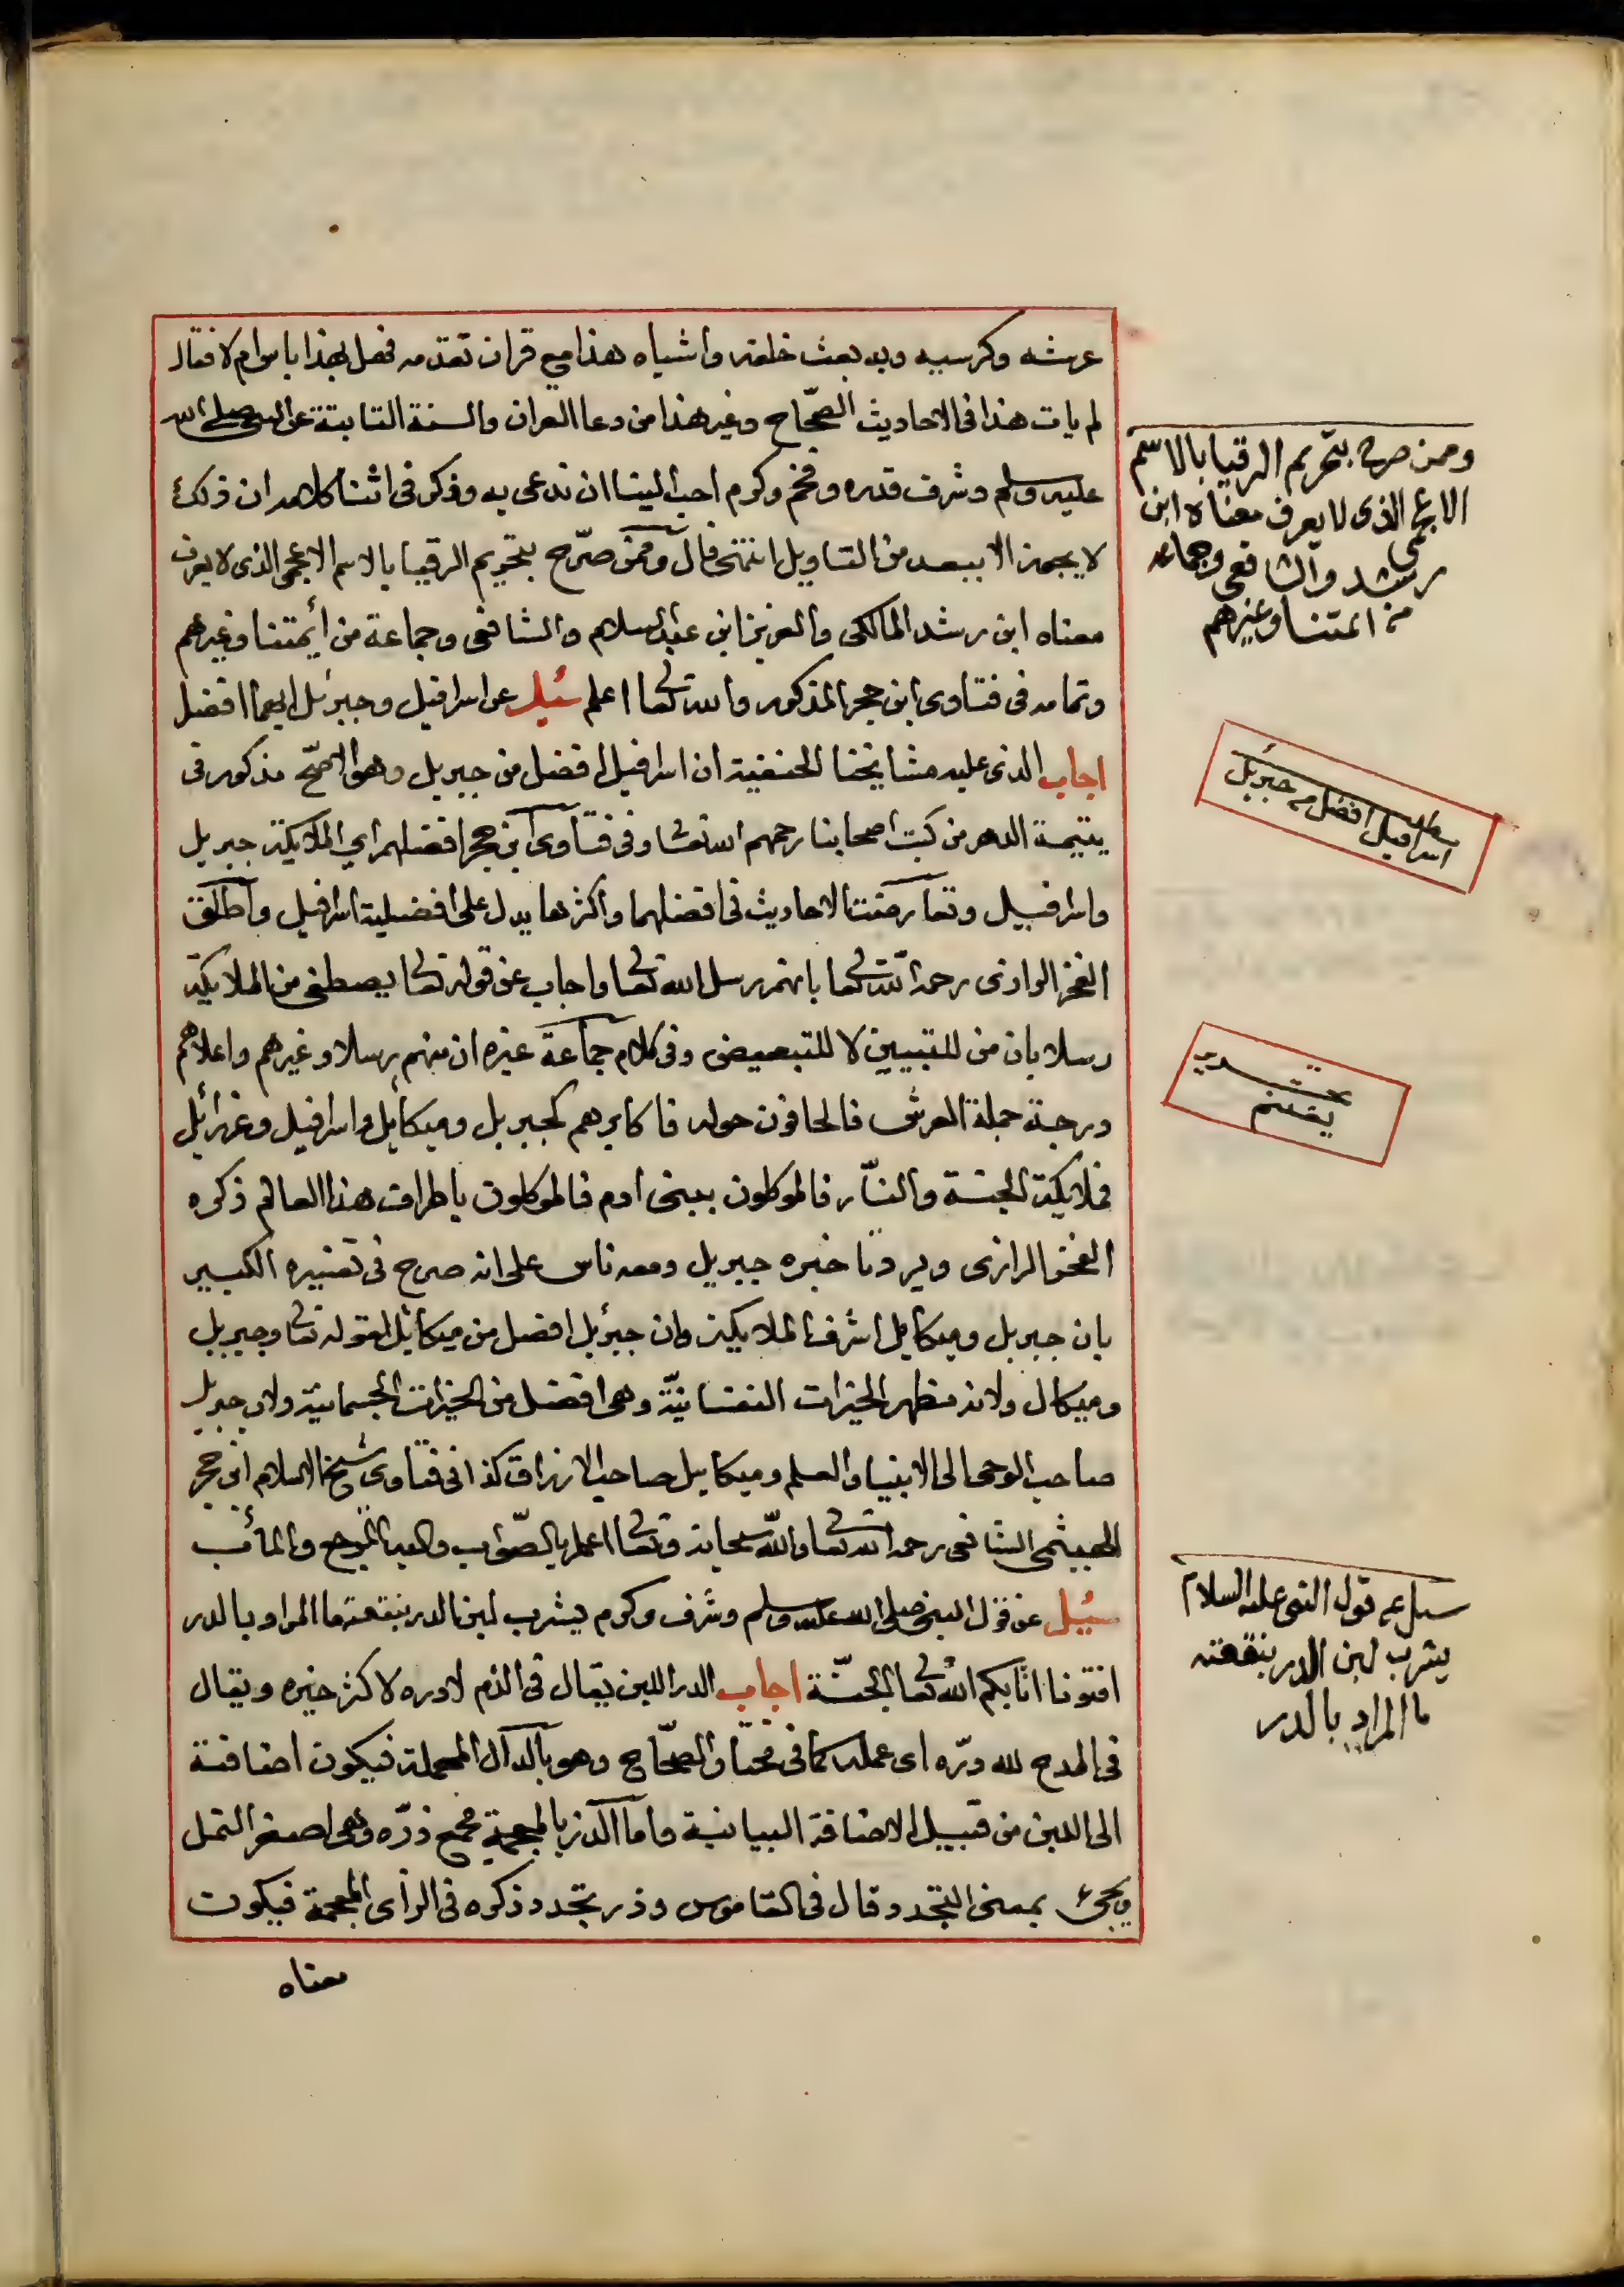 عرشه وكرسيه وبه بعث خلقه واشباه هذا مع قران تقدمه فهل بهذا باس ام لا فقال
لم يات هذا فى الاحاديث الصحّاح وغير هذا من دعا القران والسنة الثابتة عن النبى صلى الله
عليه وسلم وشرف قدره وفخم وكرم احب الينا ان ندعى به وذكر فى اثنا كلامه ان ذلك
لا يجوز الا ببعد من التاويل انتهى قال وممن صرّح بتحريم الرقيا بالاسم الاعجمى الذى لا يعرف
معناه ابن رشد المالكى والعز بن ابن عبد السلام والشافعى وجماعة من أيمتنا وغيرهم
وتمامه فى فتاوى ابن حجر المذكور والله تعالى اعلم سُئِل عن اسرافيل وجبرئل ايهما افضل
اجاب الذى عليه مشايخنا الحنفية ان اسرافيل افضل من جبريل وهو الاصحّ مذكور فى
يتيمة الدهر من كتب اصحابنا رحمهم الله تعالى وفى فتاوى ابن حجر افضلهم اي الملايكة جبريل
واسرافيل وتعارضت الاحاديث فى افضلهما واكثرها يدل على افضيلية اسرافيل واطلق
الفخر الرازى رحمه الله تعالى بانهم رسل الله تعالى واجاب عن قوله تعالى يصطفى من الملايكة
رسلا بان من للتبيين لا للتبعيض وفى كلام جماعة غيره ان منهم رسلا وغيرهم واعلاهم
درجة حملة العرش فالحافون حوله فاكابرهم كجبريل وميكايل واسرافيل وعزرائل
فملايكة الجنة والنّار فالموكلون ببنى ادم فالموكلون باطراف هذا العالم ذكره
الفخر الرازى ويرد تاخيره جبريل ومعه ناس على انه صرح فى تفسيره الكبير
بان جبريل وميكايل اشرف الملايكة وان جبرئل افضل من ميكائل لقوله تعالى وجبريل
وميكال ولانه مظهر الخيرات النفسانيّة وهى افضل من الخيرات الجسمانية ولان جبريل
صاحب الوحى الى الانبيا والعلم وميكاييل صاحب الارزاق كذا فى فتاوى شيخ الاسلام ابن حجر
الهيثمى الشافعى رحمه الله تعالى والله سبحانه وتعالى اعلم بالصّواب واليه المرجع والمأب
سُيِل عن قول النبى صلى الله عليه وسلم وشرف وكرم يشرب لبن الدر بنفقته ما المراد بالدر
افتونا اثابكم الله تعالى الجنّة اجاب الدر اللبن يقال فى الذم لا دره لا كثر خيره ويقال
فى المدح لله درّه اى عمله كما فى مختار الصحّاح وهو بالدال المهملة فيكون اضافته
الى اللبن من قبيل الاضافة البيانية واما الذر بالمعجمة فجمع ذرّه وهى اصغر النمل
ويجئ بمعنى التجدد قال فى القاموس وذر تجدد ذكره فى الرأى المعجمة فيكون
معناه
وممن صرح بتحريم الرقيا بالاسم
الاعجمى الذى لا يعرف معناه ابن
رشد والشافعى وجماعه
من ائمتنا وغيرهم
مطلب
اسرافيل افضل من جبريل
سيل عن قول النبى عليه السلام
يشرب لبن الدر بنفقته
ما المراد بالدر